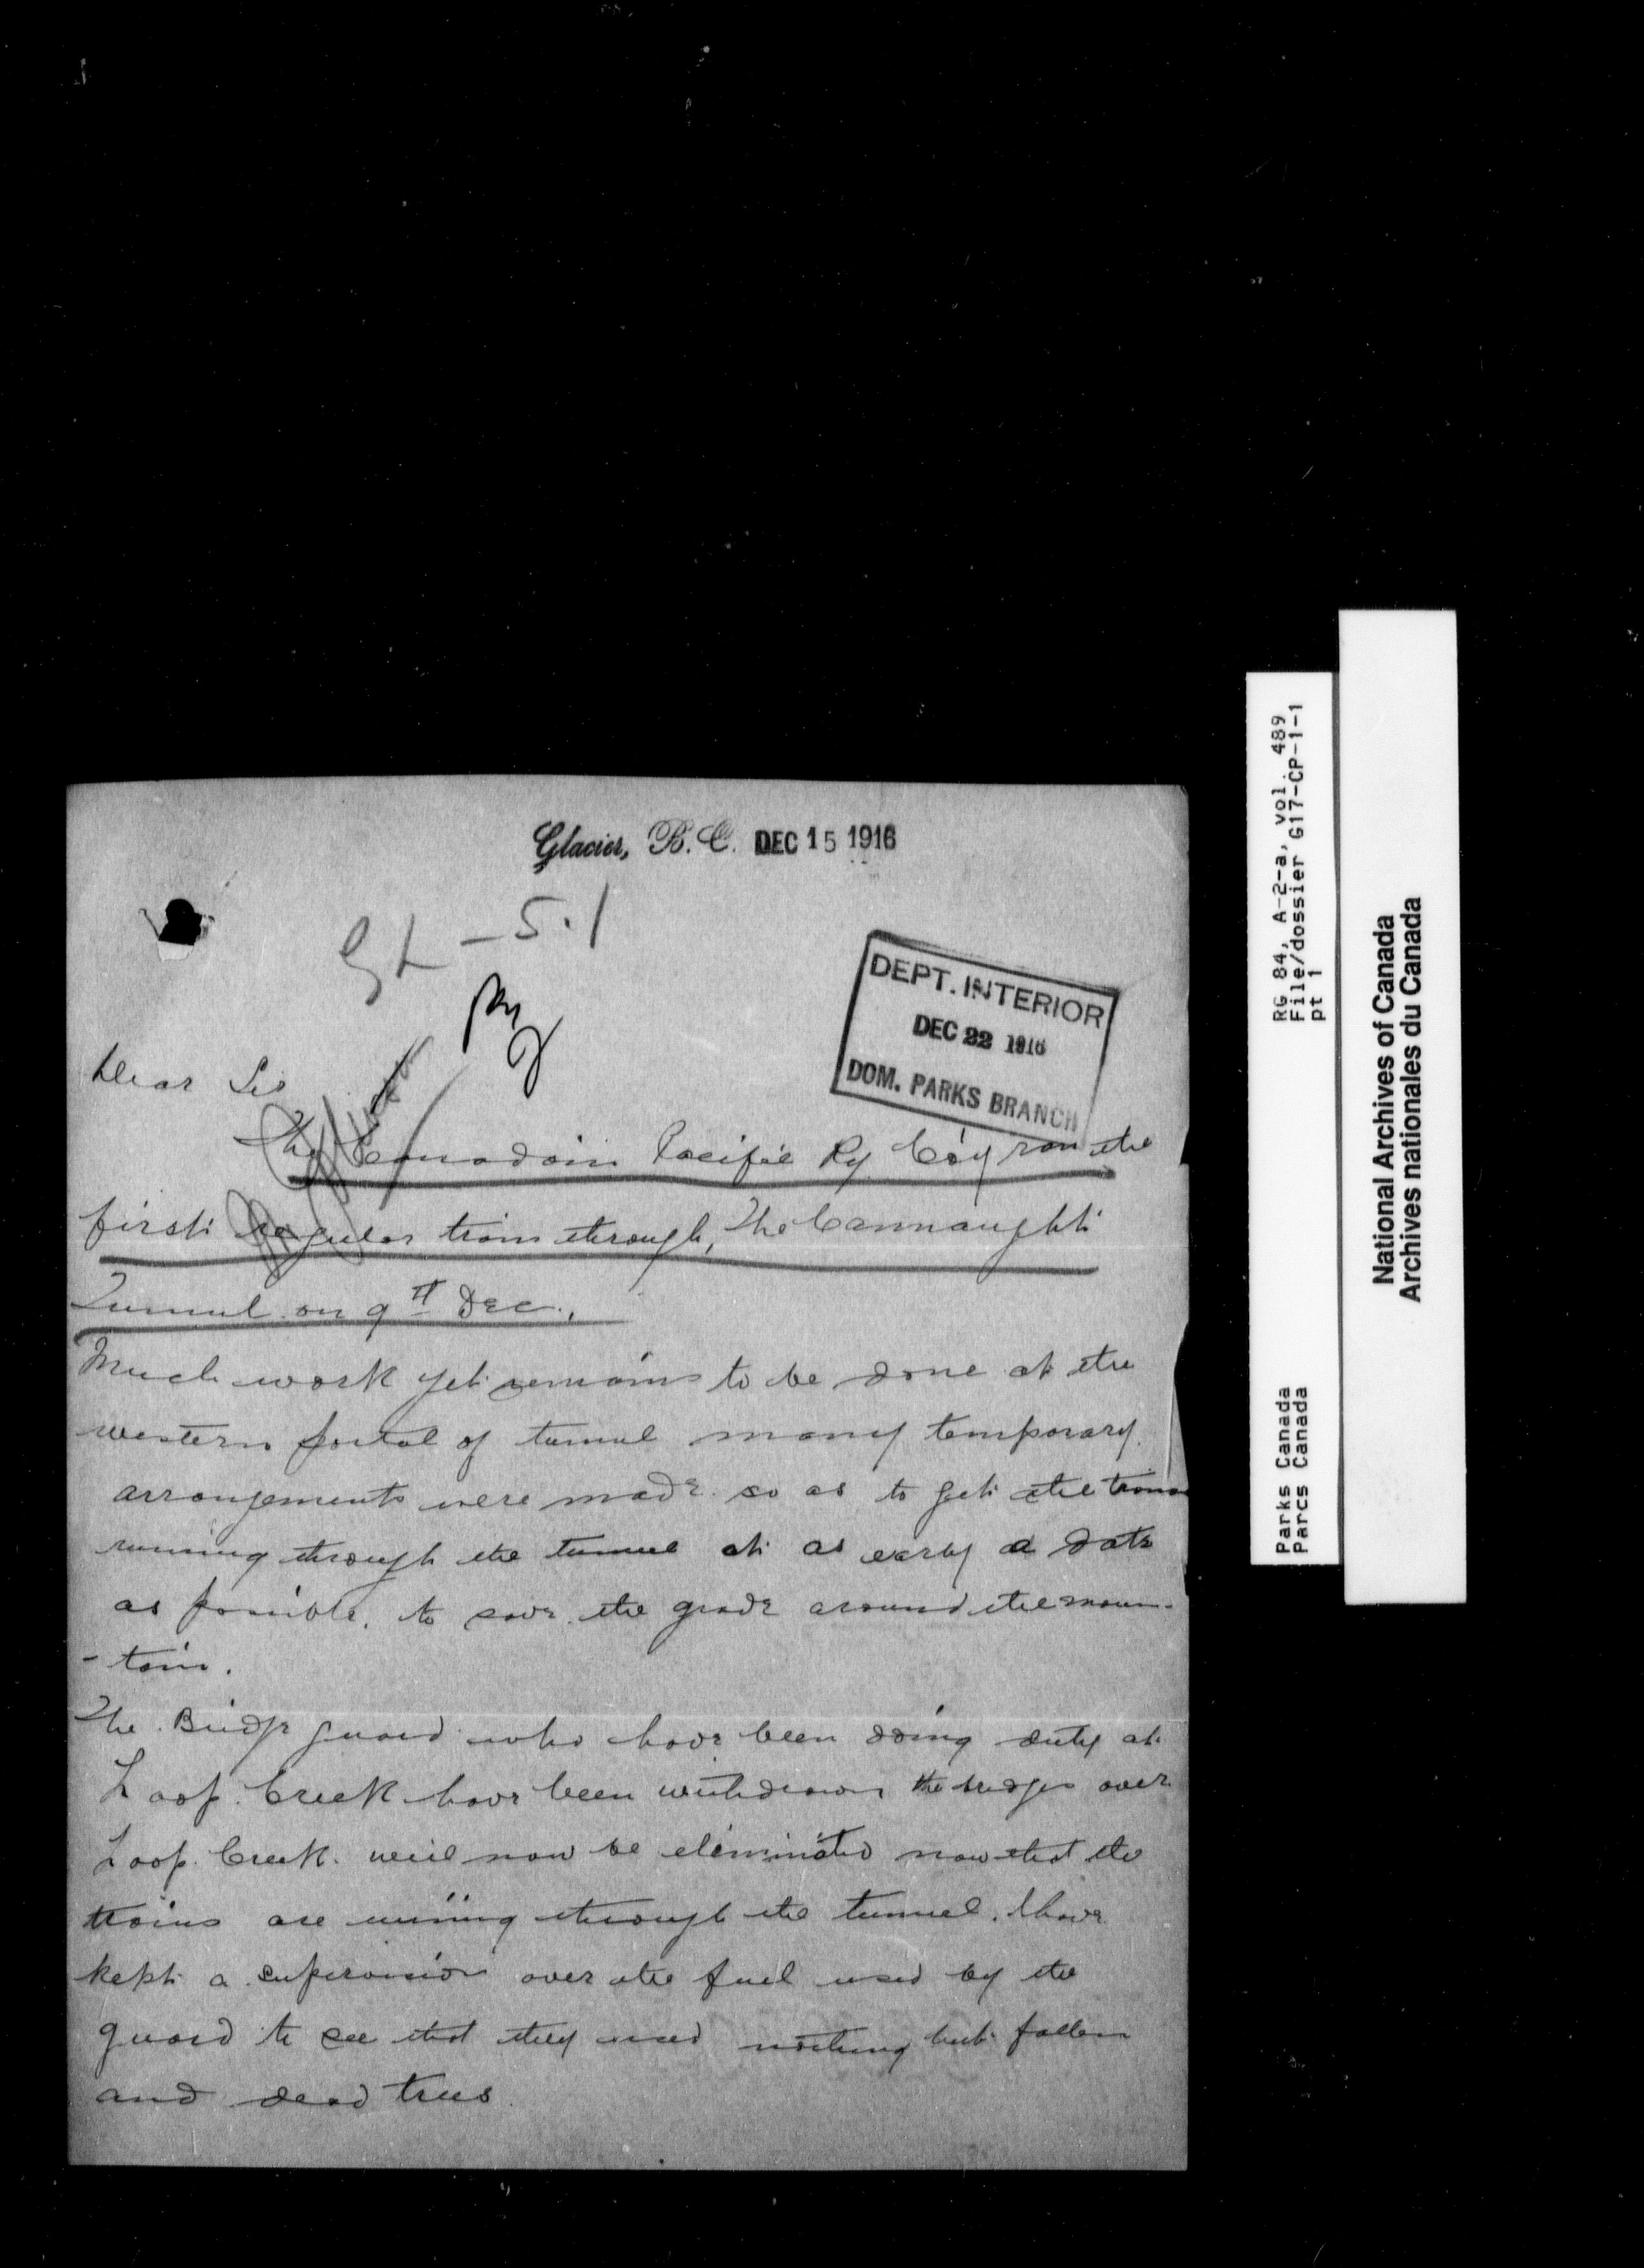 Glacier, B.C. DEC 15 1916
GL - 5.1
DEPT. INTERIOR
DEC 22 1916
DOM. PARKS BRANCH
Dear Sir
The Canadain Pacific Ry Co'y ran the
first regular train through, The Connaught
Tunnel on 9th Dec.,
Much work yet remains to be done at the
western portal of tunnel many temporary
arrangements were made so as to get the trains
running through the tunnel at as early a date
as possible, to save the grade around the moun-
- tain.
The Bridge guard who have been doing duty at
Loop Creek have been withdrawn the bridges over
Loop Creek will now be eliminated now that the
trains are running through the tunnel. I have
kept a supervision over the fuel used by the
guard to see that they used nothing but fallen
and dead trees
RG 84, A-2-a, vol. 489
File/dossier G17-CP-1-1
pt 1
Parks Canada
Parcs Canada
National Archives of Canada
Archives nationales du Canada